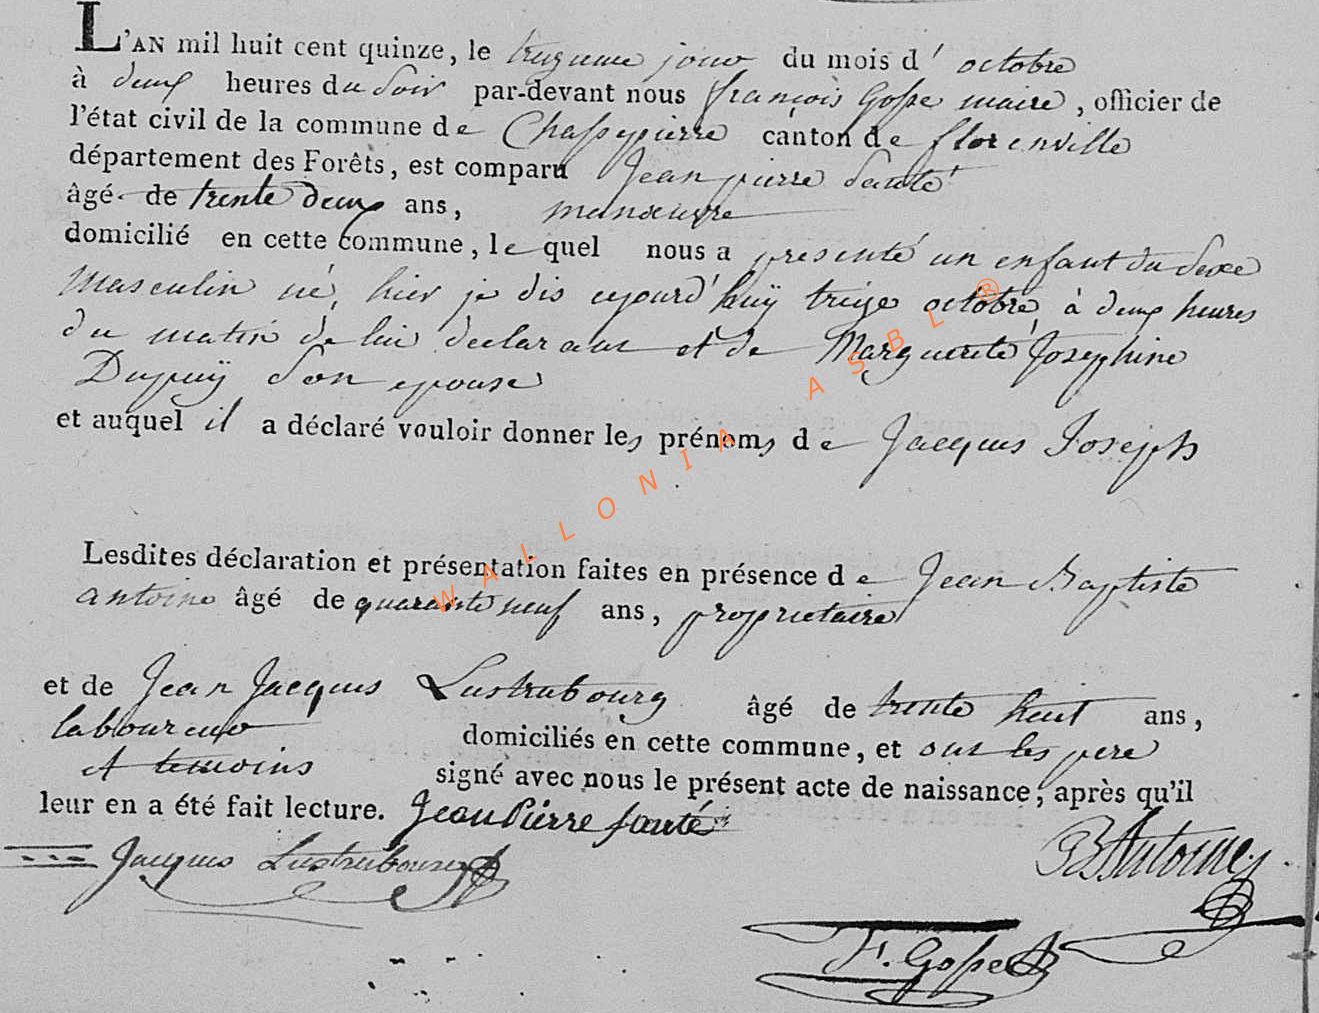 L'AN mil huit cent quinze, le treizieme jour du mois d' octobre
à deux heures du soir par-devant nous françois Gosse maire, officier de
l'état civil de la commune de Chassepierre canton de florenville
département des Forêts, est comparu Jean pierre Santé
âgé de trente deux ans, manœuvre
domicilié en cette commune, le quel nous a presenté un enfant du sexe
Masculin né, hier je dis aujourd'huÿ treize octobre à deux heures
du matin de lui declarant et de Marguerite Josephine
Dupuÿ son epouse
et auquel il a déclaré vouloir donner les prénoms de Jacques Joseph
Lesdites déclaration et présentation faites en présence de Jean Baptiste
antoine âgé de quarante neuf ans, proprietaire
et de Jean Jacques Lustrubourg âgé de trente huit ans,
laboureur domiciliés en cette commune, et ont les pere
et temoins signé avec nous le présent acte de naissance, après qu'il
leur en a été fait lecture. Jean Pierre Santé
Jacques Lustrubourg
JB Antoine
F. Gosse
WALLONIA ASBL ®